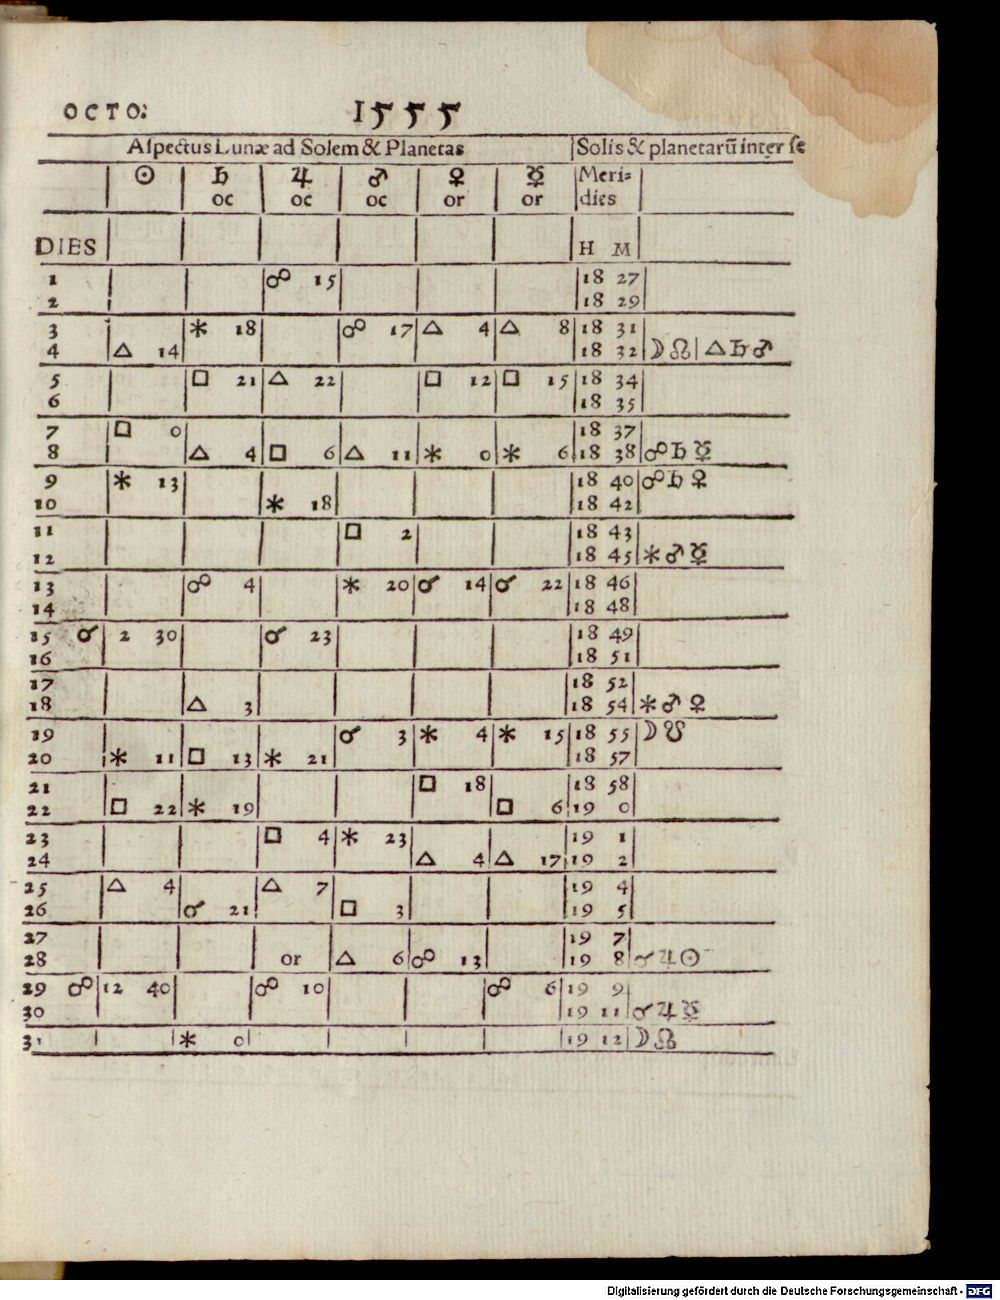 OCTO: 1555
Aſpectus Lunæ ad Solem & Planetas Solis & planetarũ inter ſe
☉ ♄ ♃ ♂ ♀ ☿ Meri=
oc oc oc or or dies
DIES H M
1 ☍ 15 18 27
2 18 29
3 ⚹ 18 ☍ 17 △ 4 △ 8 18 31
4 △ 14 18 32 ☽ ☊ △ ♄ ♂
5 □ 21 △ 22 □ 12 □ 15 18 34
6 18 35
7 □ 0 18 37
8 △ 4 □ 6 △ 11 ⚹ 0 ⚹ 6 18 38 ☍ ♄ ☿
9 ⚹ 13 18 40 ☍ ♄ ♀
10 ⚹ 18 18 42
11 □ 2 18 43
12 18 45 ⚹ ♂ ☿
13 ☍ 4 ⚹ 20 ☌ 14 ☌ 22 18 46
14 18 48
15 ☌ 2 30 ☌ 23 18 49
16 18 51
17 18 52
18 △ 3 18 54 ⚹ ♂ ♀
19 ☌ 3 ⚹ 4 ⚹ 15 18 55 ☽ ☋
20 ⚹ 11 □ 13 ⚹ 21 18 57
21 □ 18 18 58
22 □ 22 ⚹ 19 □ 6 19 0
23 □ 4 ⚹ 23 19 1
24 △ 4 △ 17 19 2
25 △ 4 △ 7 19 4
26 ☌ 21 □ 3 19 5
27 19 7
28 or △ 6 ☍ 13 19 8 ☌ ♃ ☉
29 ☍ 12 40 ☍ 10 ☍ 6 19 9
30 19 11 ☌ ♃ ☿
31 ⚹ 0 19 12 ☽ ☊
Digitalisierung gefördert durch die Deutsche Forschungsgemeinschaft - DFG